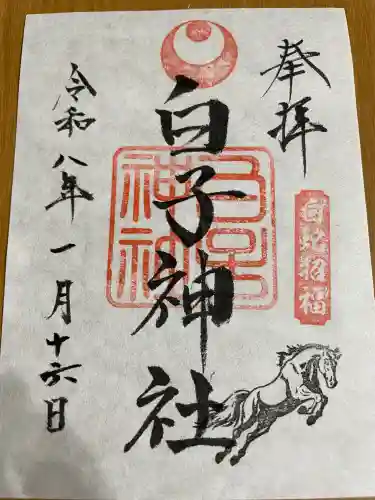 奉拝
白蛇招福
白子神社
令和八年一月十六日